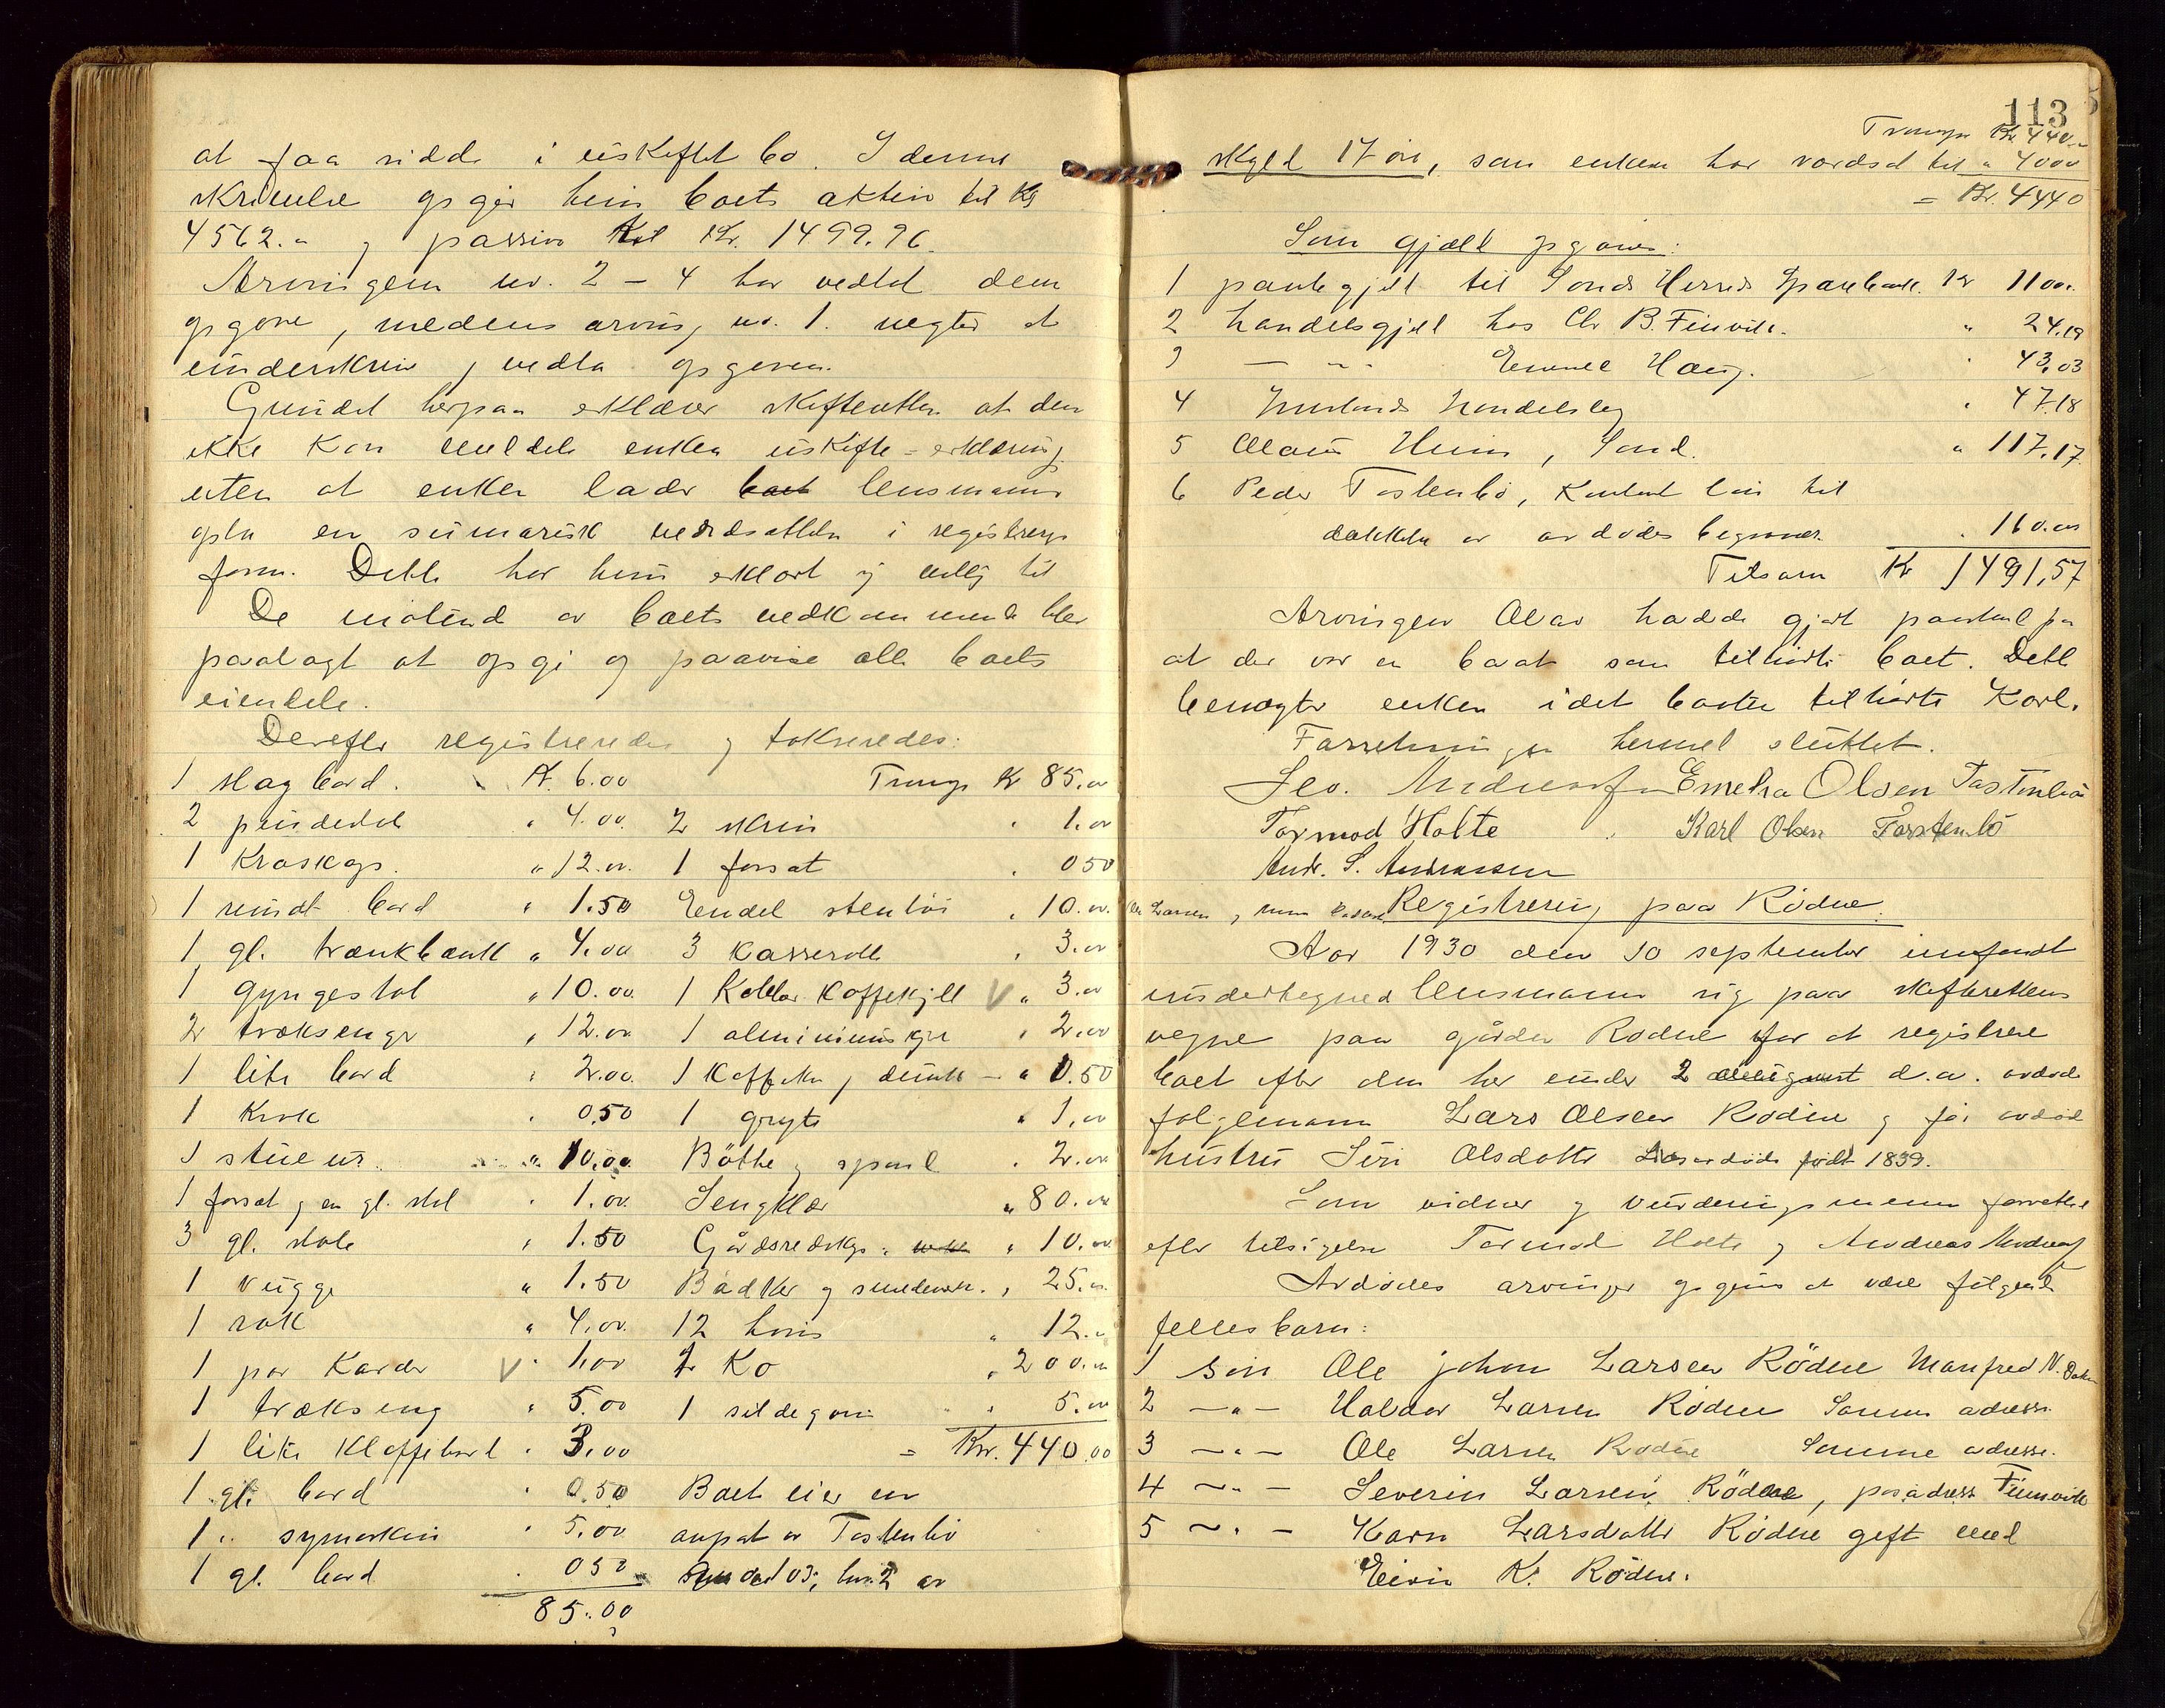 at faa sidde i uskiftet bo. I denne
skrivelse opgir hun boets aktiva til Kr
4562.- og passiva til Kr. 1499.96.
Arvingen nr. 2 - 4 har vedtat dem
opgave, medens arving nr. 1. negter at
underskriv og vedta opgaven.
Grundet herpaa erklærer skifteretten at den
ikke kan meddele enken uskifte-erklæring
uten at enken lader boet lensmann
opta en sumarisk værdsættelse i registrerings
form. Dette har hun erklært sig villig til
De møtende av boets vedkommende blev
paalagt at opgi og paavise alle boets
eiendele.
Derefter registreredes og takseredes:
1 slagbord. Kr. 6.00 Transp. Kr 85.00
2 pindestol " 4.00. 2 skrin " 1.00
1 Kroskap. " 12.00. 1 forsat " 0 50
1 rundt bord " 1.50 Endel stentøi " 10.00.
1 gl. trænkbænk " 4.00 3 kasserolle " 3.00
1 gyngestol " 10.00. 1 Kobbar kaffekjel V " 3.00
2 træksenge " 12.00. 1 aluminiumskjel " 2.00
1 lite bord " 2.00. 1 Kaffekv. og dunk - " 0.50
1 Krok " 0.50 1 gryte " 1.00
1 stueur " 10.00. Bøtte og span " 2.00
1 forsat og en gl. stol " 1.00. Sengklær " 80.00
3 gl. stole " 1.50 Gårdsredskp. " 10.00
1 vugge " 1.50 Bødker og smedverk. " 25.00
1 rok " 4.00. 12 høns " 12.-
1 par Karder V " 1.00 2 Ko " 200.00
1 trækseng " 5.00 1 sildegarn " 5.00
1 lite klaffebord " 3.00 = Kr. 440.00
1 gl. bord " 0.50 Boet eier en
1 " symaskin " 5.00 anpart av Tastenbø
1 gl. bord " 0 50 103, br. 2 av
85.00
113
Transp. Kr 440.-
skyld 17 øre, som enken har værdsat til " 4000
= Kr. 4440
Som gjæld opgaves:
1 pantegjæld til Sands Herreds Sparebank. Kr 1100.
2 handelsgjæld hos Chr B. Finvik. " 24.19
3 - " - Emmel Haug. " 43,03
4 handelslag " 47.18
5 Olav Heim, Sand. " 117.17
6 Peder Tastenbø, Kontant lån til
dækkelse av avdødes begravels. " 160.00
Tilsam Kr 1491,57
Arvingen Olav hadde gjort paastand på
at der var en baat som tilhørte boet. Dette
benegter enken idet baaten tilhørte Karl.
Forretningen hermed sluttet.
Emelia Olsen Tastenbø
Tormod Holte Karl Olsen Tarstenbø
Andr. S. Andreassen
Registrering paa Rødne.
Aar 1930 den 10 september innfandt
undertegned lensmann sig paa skifterettens
vegne paa gården Rødne for at registrere
boet efter den her under 2 august d.a. avdøde
følgemann Lars Olsen Rødne og før avdød
hustru Siri Olsdotter født 1839.
Som vidner og vurderingsmenn forrettet
efter tilsigelse Tormod Holte og Andreas Andreass
Avdødes arvinger opgives at være følgende
fellesbarn:
1 søn Ole Johan Larsen Rødne Manfred N. Dakota
2 - " - Haldor Larsen Rødne Samme adresse
3 - " - Ole Larsen Rødne Samme adresse.
4 - " - Severin Larsen Rødne, pr. adress Finnvik
5 - " - Karn Larsdotter Rødne gift med
Eivin K. Rødne.